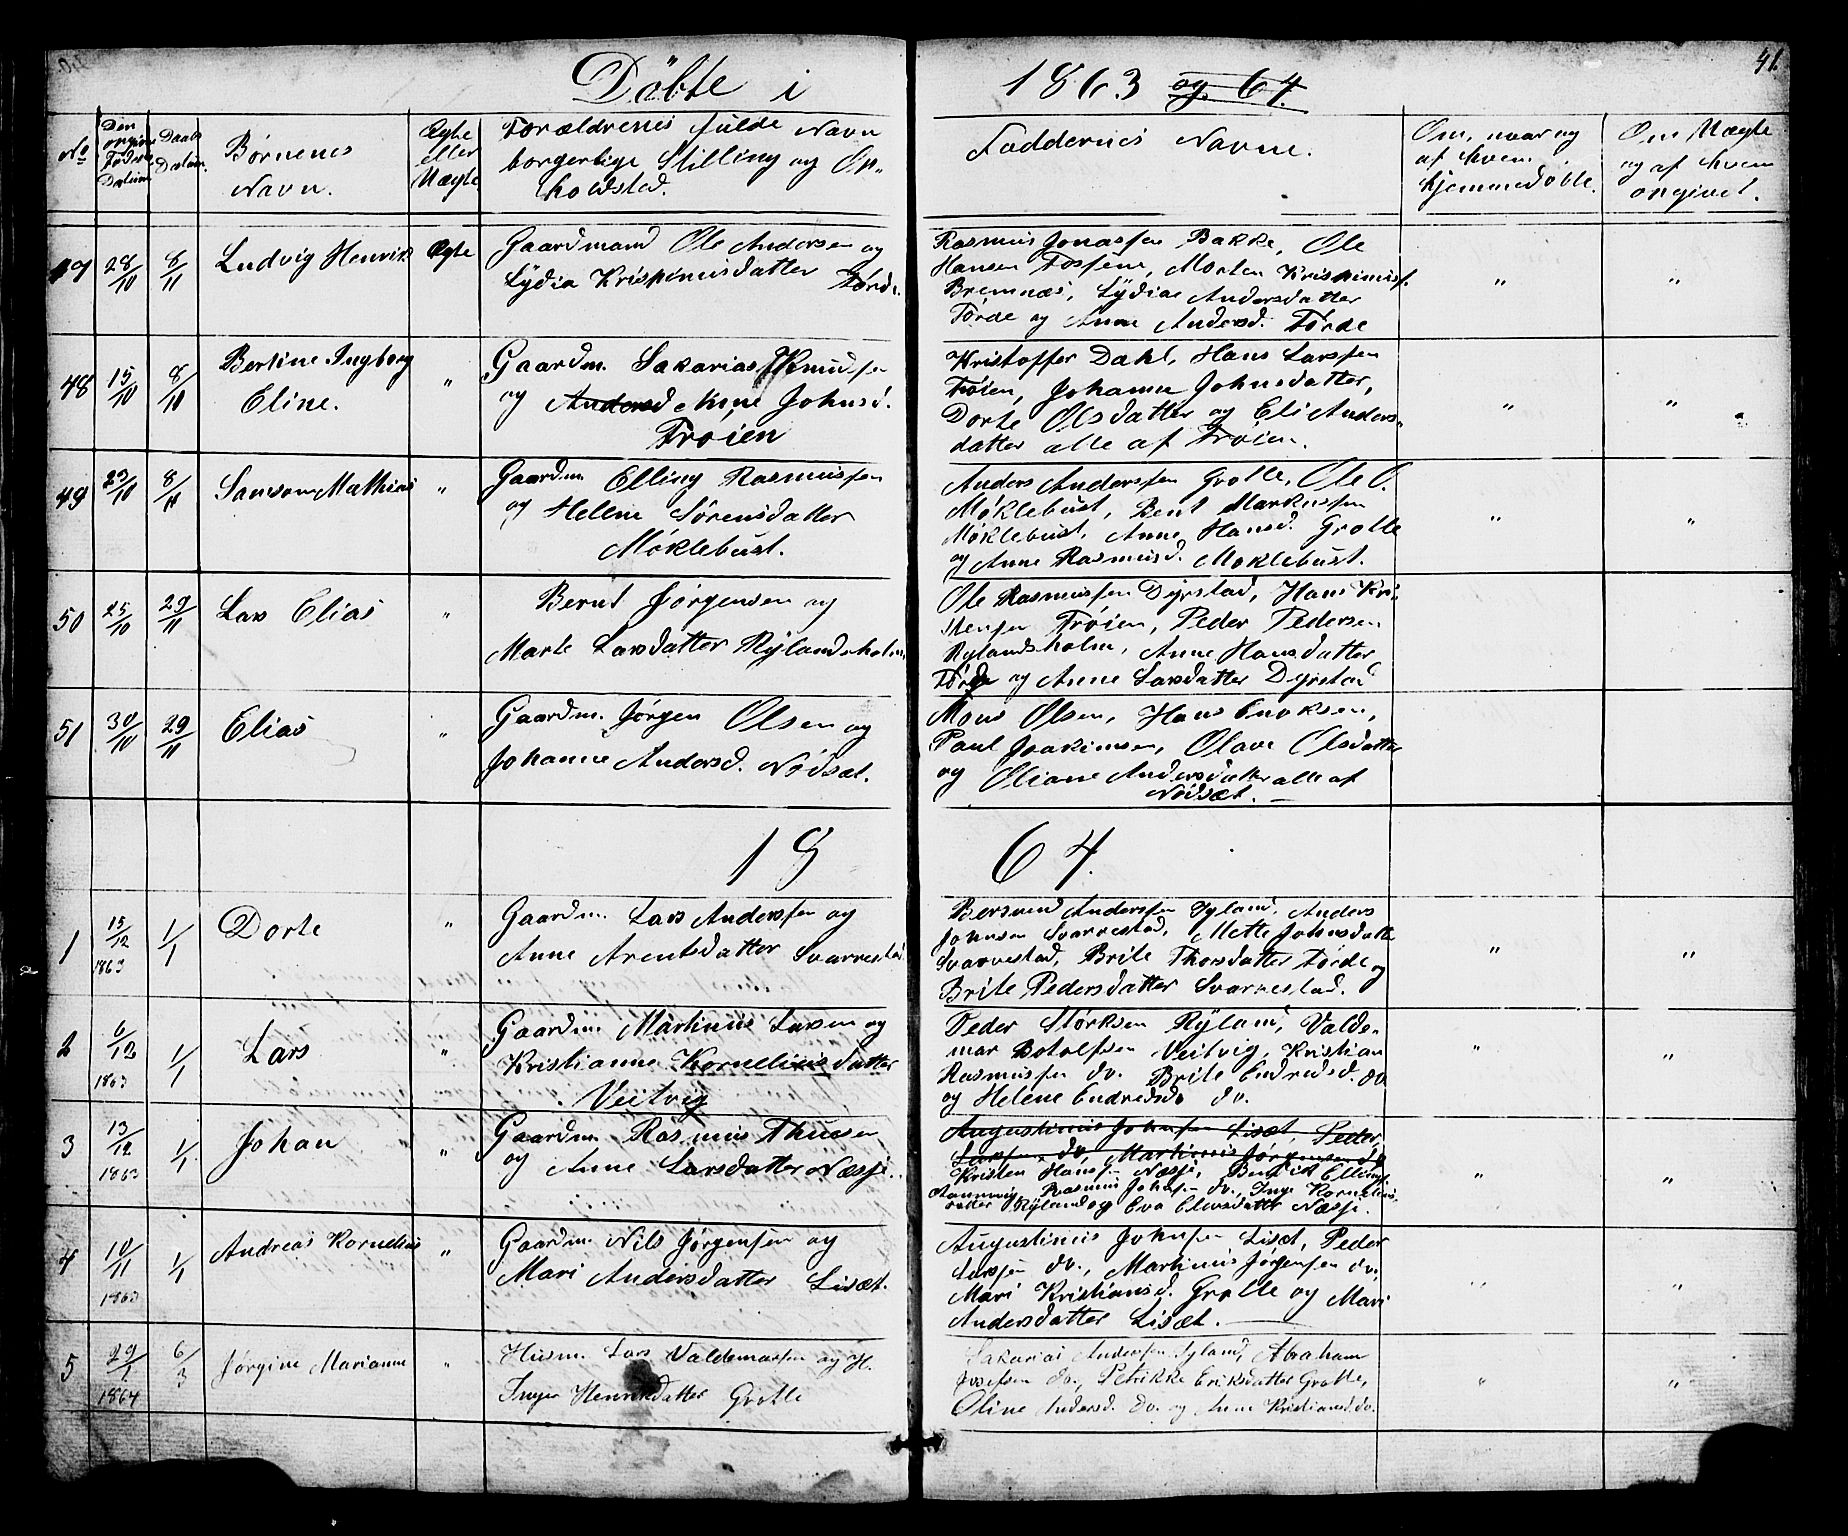 Döbte i 1863 og 64. 41.
No
Den
angivne
Födsels
Datum
Daabs
Datum.
Børnenes
Navn.
Ægte
eller
Uægte
Forældrenes fulde Navn
borgerlige Stilling og Op-
holdsted.
Faddernes Navne.
Om, naar og
af hvem
hjemmedöbt.
Om Uægte
og af hvem
angivet.
47 28/10 8/11 Ludvig Henrik Ægte
Gaardmand Ole Andersen og
Lydia Krispinusdatter Förde.
Rasmus Jonassen Bakke, Ole
Hansen Fosseim, Morten Krispinuss.
Bremnæs, Lydia Andersdatter
Förde og Anne Andersd. Förde
" "
48 15/10 8/10 Bertine Ingborg
Eline. "
Gaardm. Sakarias Knudsen
og Andersd Anne Johnsd.
Tröien
Kristoffer Dahl, Hans Larssen
Tröien, Johanne Johnsdatter,
Dorte Olsdatter og Eli Anders-
datter alle af Tröien.
" "
49 23/10 8/11 Samson Mathias "
Gaardm. Elling Rasmussen
og Helene Sörensdatter
Möklebust.
Anders Anderssen Grotle, Ole O.
Möklebust, Bent Markussen
Möklebust, Anne Hansd. Grotle
og Anne Rasmusd. Moklebust.
" "
50 25/10 29/11 Lars Elias "
Bernt Jörgensen og
Marte Larsdatter Rylandsholm
Ole Rasmussen Dyrstad, Hans Kri-
stensen Tröien, Peder Pedersen
Rylandsholm, Anne Hansdatter
Förde og Anne Larsdatter Dyrstad
51 30/10 29/11 Elias "
Gaardm. Jörgen Olsen og
Johanne Andersd. Nödsæt.
Mons Olsen, Hans Enoksen,
Paul Joakimsen, Olave Olsdatter
og Oliane Andersdatter alle af
Nödsæt.
18 64.
1 15/12 1/1 Dorte "
1863
Gaardm. Lars Anderssen og
Anne Arentsdatter Svarvestad
Andersen Ryland, Anders
Johnsen Svarvestad, Mette Johnsdatter
Svarvestad, Brite Thorsdatter Förde og
Brite Pedersdatter Svarvestad.
" "
2 6/12 1/1 Lars "
1863
Gaardm. Martinus Larsen og
Kristianne Korneliusdatter
Veitvig
Peder Störksen Ryland, Valde-
mar Botolfsen Veitvig, Kristian
Rasmussen do. Brite Endresd. do
og Helene Endresd. do.
" "
3 13/12 1/1 Johan "
1863
Gaardm. Rasmus Thuesen
og Anne Larsdatter Næsje.
Augustinus Johnsen Lisæt, Peder
Larssen do, Martinus Jörgensen do
Kristen Hanss. Næsje, Bendick Ellings.
Rasmus Johnsen do., Inge Kornelius-
datter Ryland og Eva Elensdatter Næsje.
" "
4 10/11 1/1 Andreas Kornelius "
1863
Gaardm. Nils Jörgensen og
Mari Andersdatter Lisæt.
Augustinus Johnsen Lisæt, Peder
Larssen do., Martinus Jörgensen do,
Mari Kristiansd. Grotle og Mari
Andersdatter Lisæt.
" "
5 29/1 6/3 Jörgine Marianne "
1864
Husm. Lars Valdemarsen og H.
Inger Henriksdatter Grotle
Sakarias Andersen Ryland, Abraham
Josefsen do., Petrikke Eriksdatter Grotle,
Oline Andersd. do. og Anne Kristiansd. do.
" "